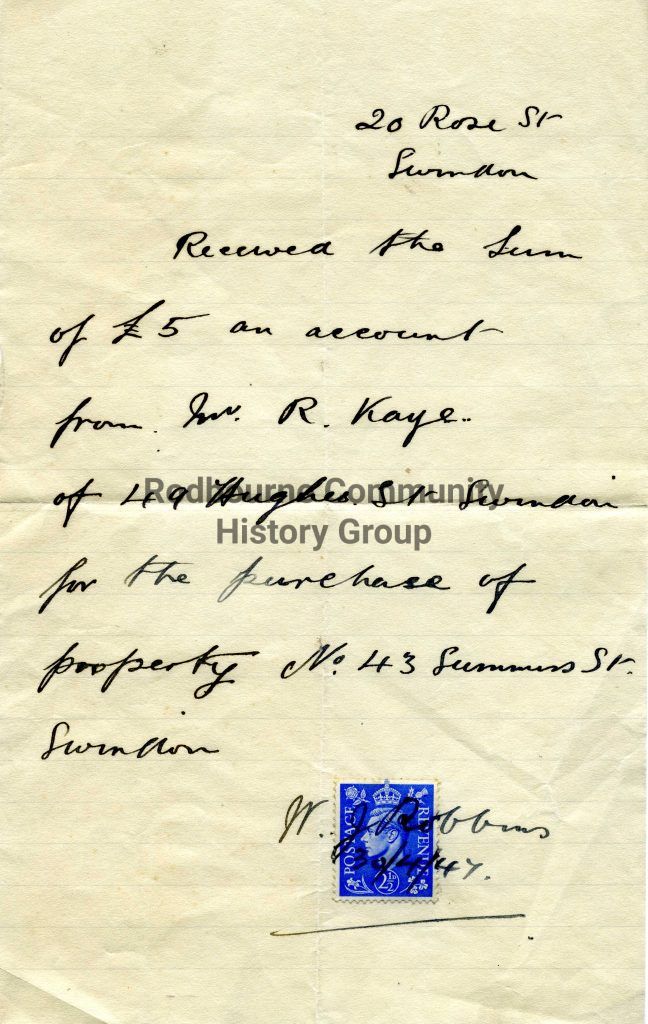 20 Rose St
Swindon
Received the Sum
of £5 an account
from Mr. R. Kaye.
of 49 Hughes St Swindon
Redbourne Community
History Group
for the purchase of
property No. 43 Summers St.
Swindon
W. J Robbins
30/4/47.
POSTAGE REVENUE
2½D